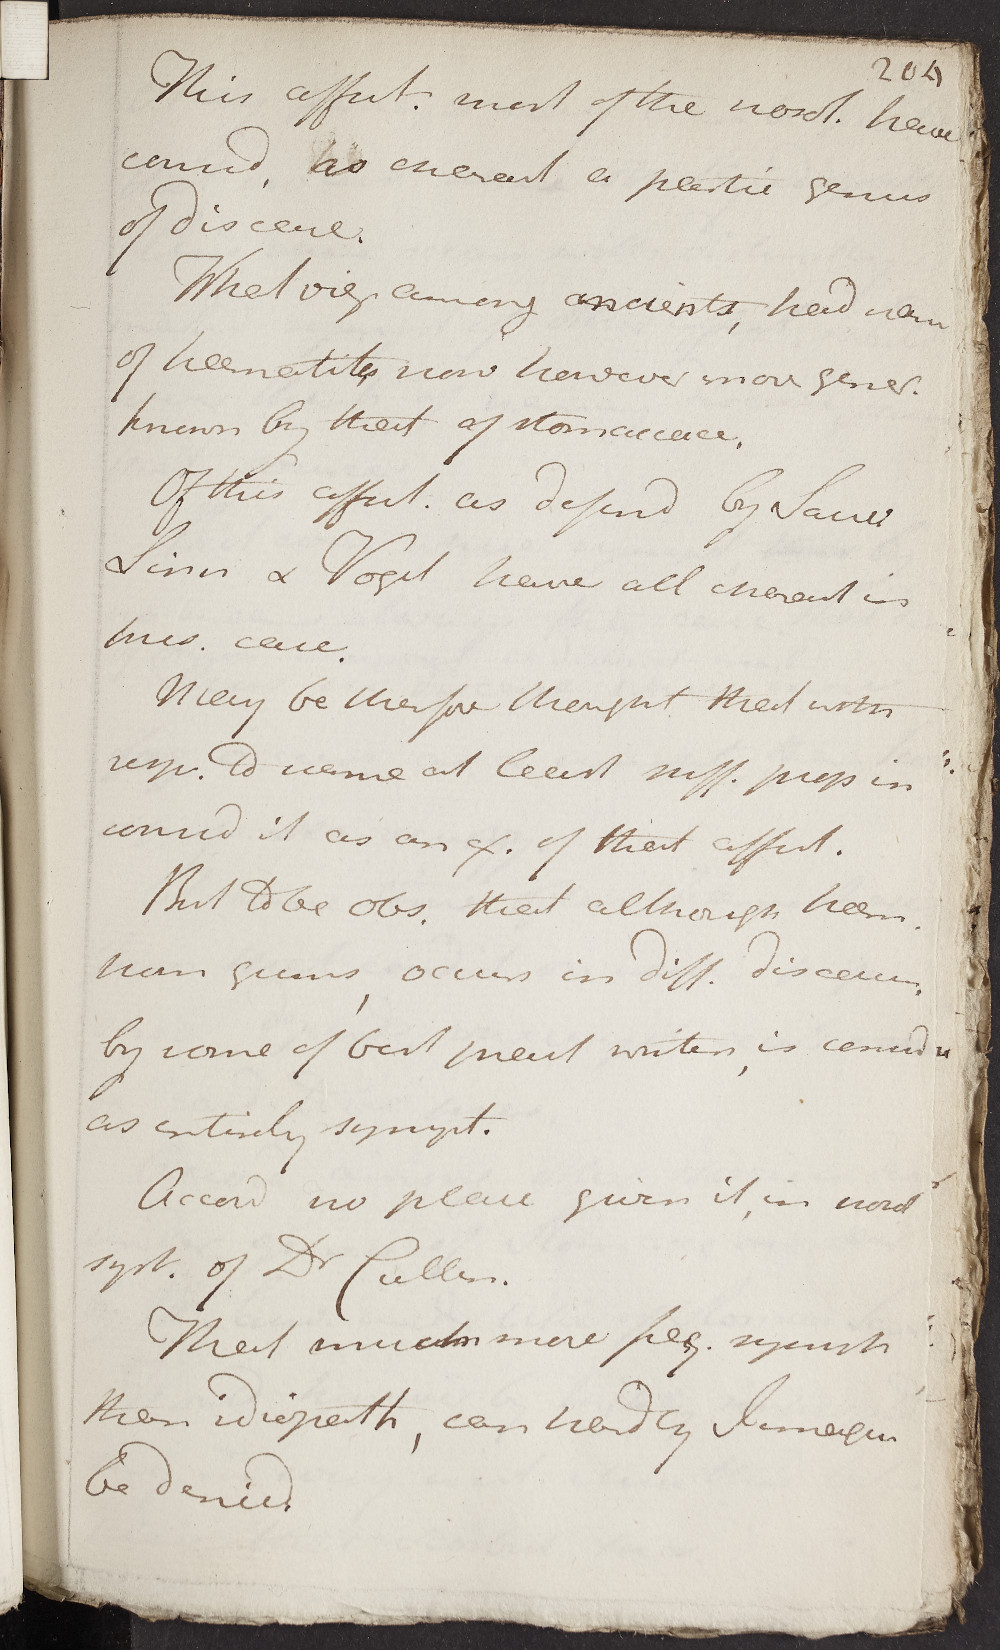 204
This affect. most of the nosol. have
consid, as charact a partic genus
of disease.
What vig. among ancients, had nam
of heematitis now however more gener.
known by that of stomacace.
Of this affect. as defind by Sauv
Linn & Vogel have all charact in
his. case.
May be therfore thought that with
resp. to name at least suff. prop in
consid it as an ex. of that affect.
But to be obs. that although heem.
from gums, occurs in diff. diseases,
by some of best pract writers, is consid
as entirely sympt.
Accord no place given it, in nosol
syst. of Dr Cullen.
That much more freq. sympth
than idiopath, can hardly I imagin
be denied.